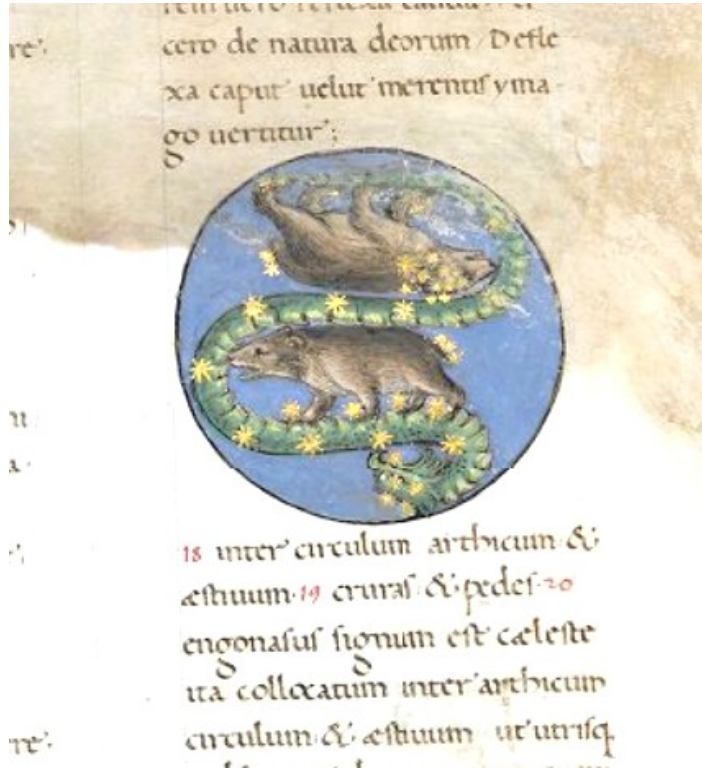 cero de natura deorum Defle
xa caput uelut merentis yma
go uertitur;
18 inter circulum arthicum &
æstiuum 19 cruras & pedes 20
engonasus signum est cæleste
ita collocatum inter arthicum
circulum & æstiuum ut utrisq